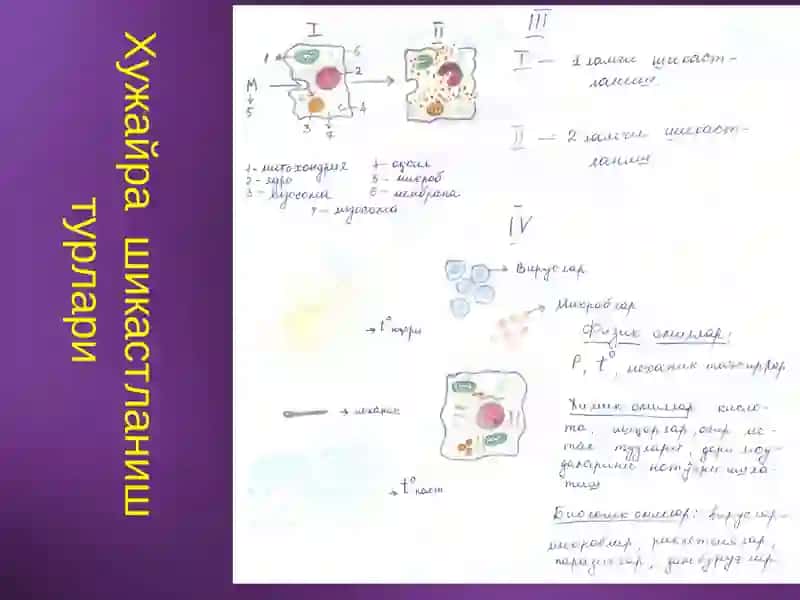 Хужайра шикастланиш
турлари
I
II
1
6
2
М
5
4
3
7
1 - митохондрия
2 - ядро
3 -
5 - микроб
6 - мембрана
7 - лизосома
III
I — 1 ламчи шикаст-
ланиш
II — 2 ламчи шикаст-
ланиш
IV
Вируслар
Микроблар
t° юқори
механик
t° паст
Физик омиллар:
P, t°, механик таъсирлар
Химик омиллар кисло-
та, ишқорлар, оғир ме-
тал тузлари, дори мод-
даларини нотўғри ишла-
тиш
Биологик омиллар: вируслар
микроблар, риккетсиялар,
паразитлар, замбуруғлар